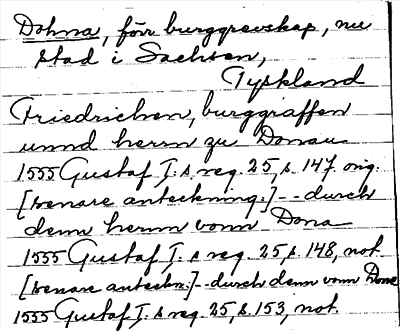 Dohna, förr burggrevskap, nu
stad i Sachsen,
Tyskland
Friedrichen, burggraffen
unnd herrn zu Donau
1555 Gustaf I:s reg. 25, s. 147. orig.
[senare anteckning:] -- durch
denn herrn vonn Dona
1555 Gustaf I:s reg. 25, s. 148, not.
[senare anteckn:] -- durch denn vonn Done
1555 Gustaf I:s reg. 25, s. 153, not.